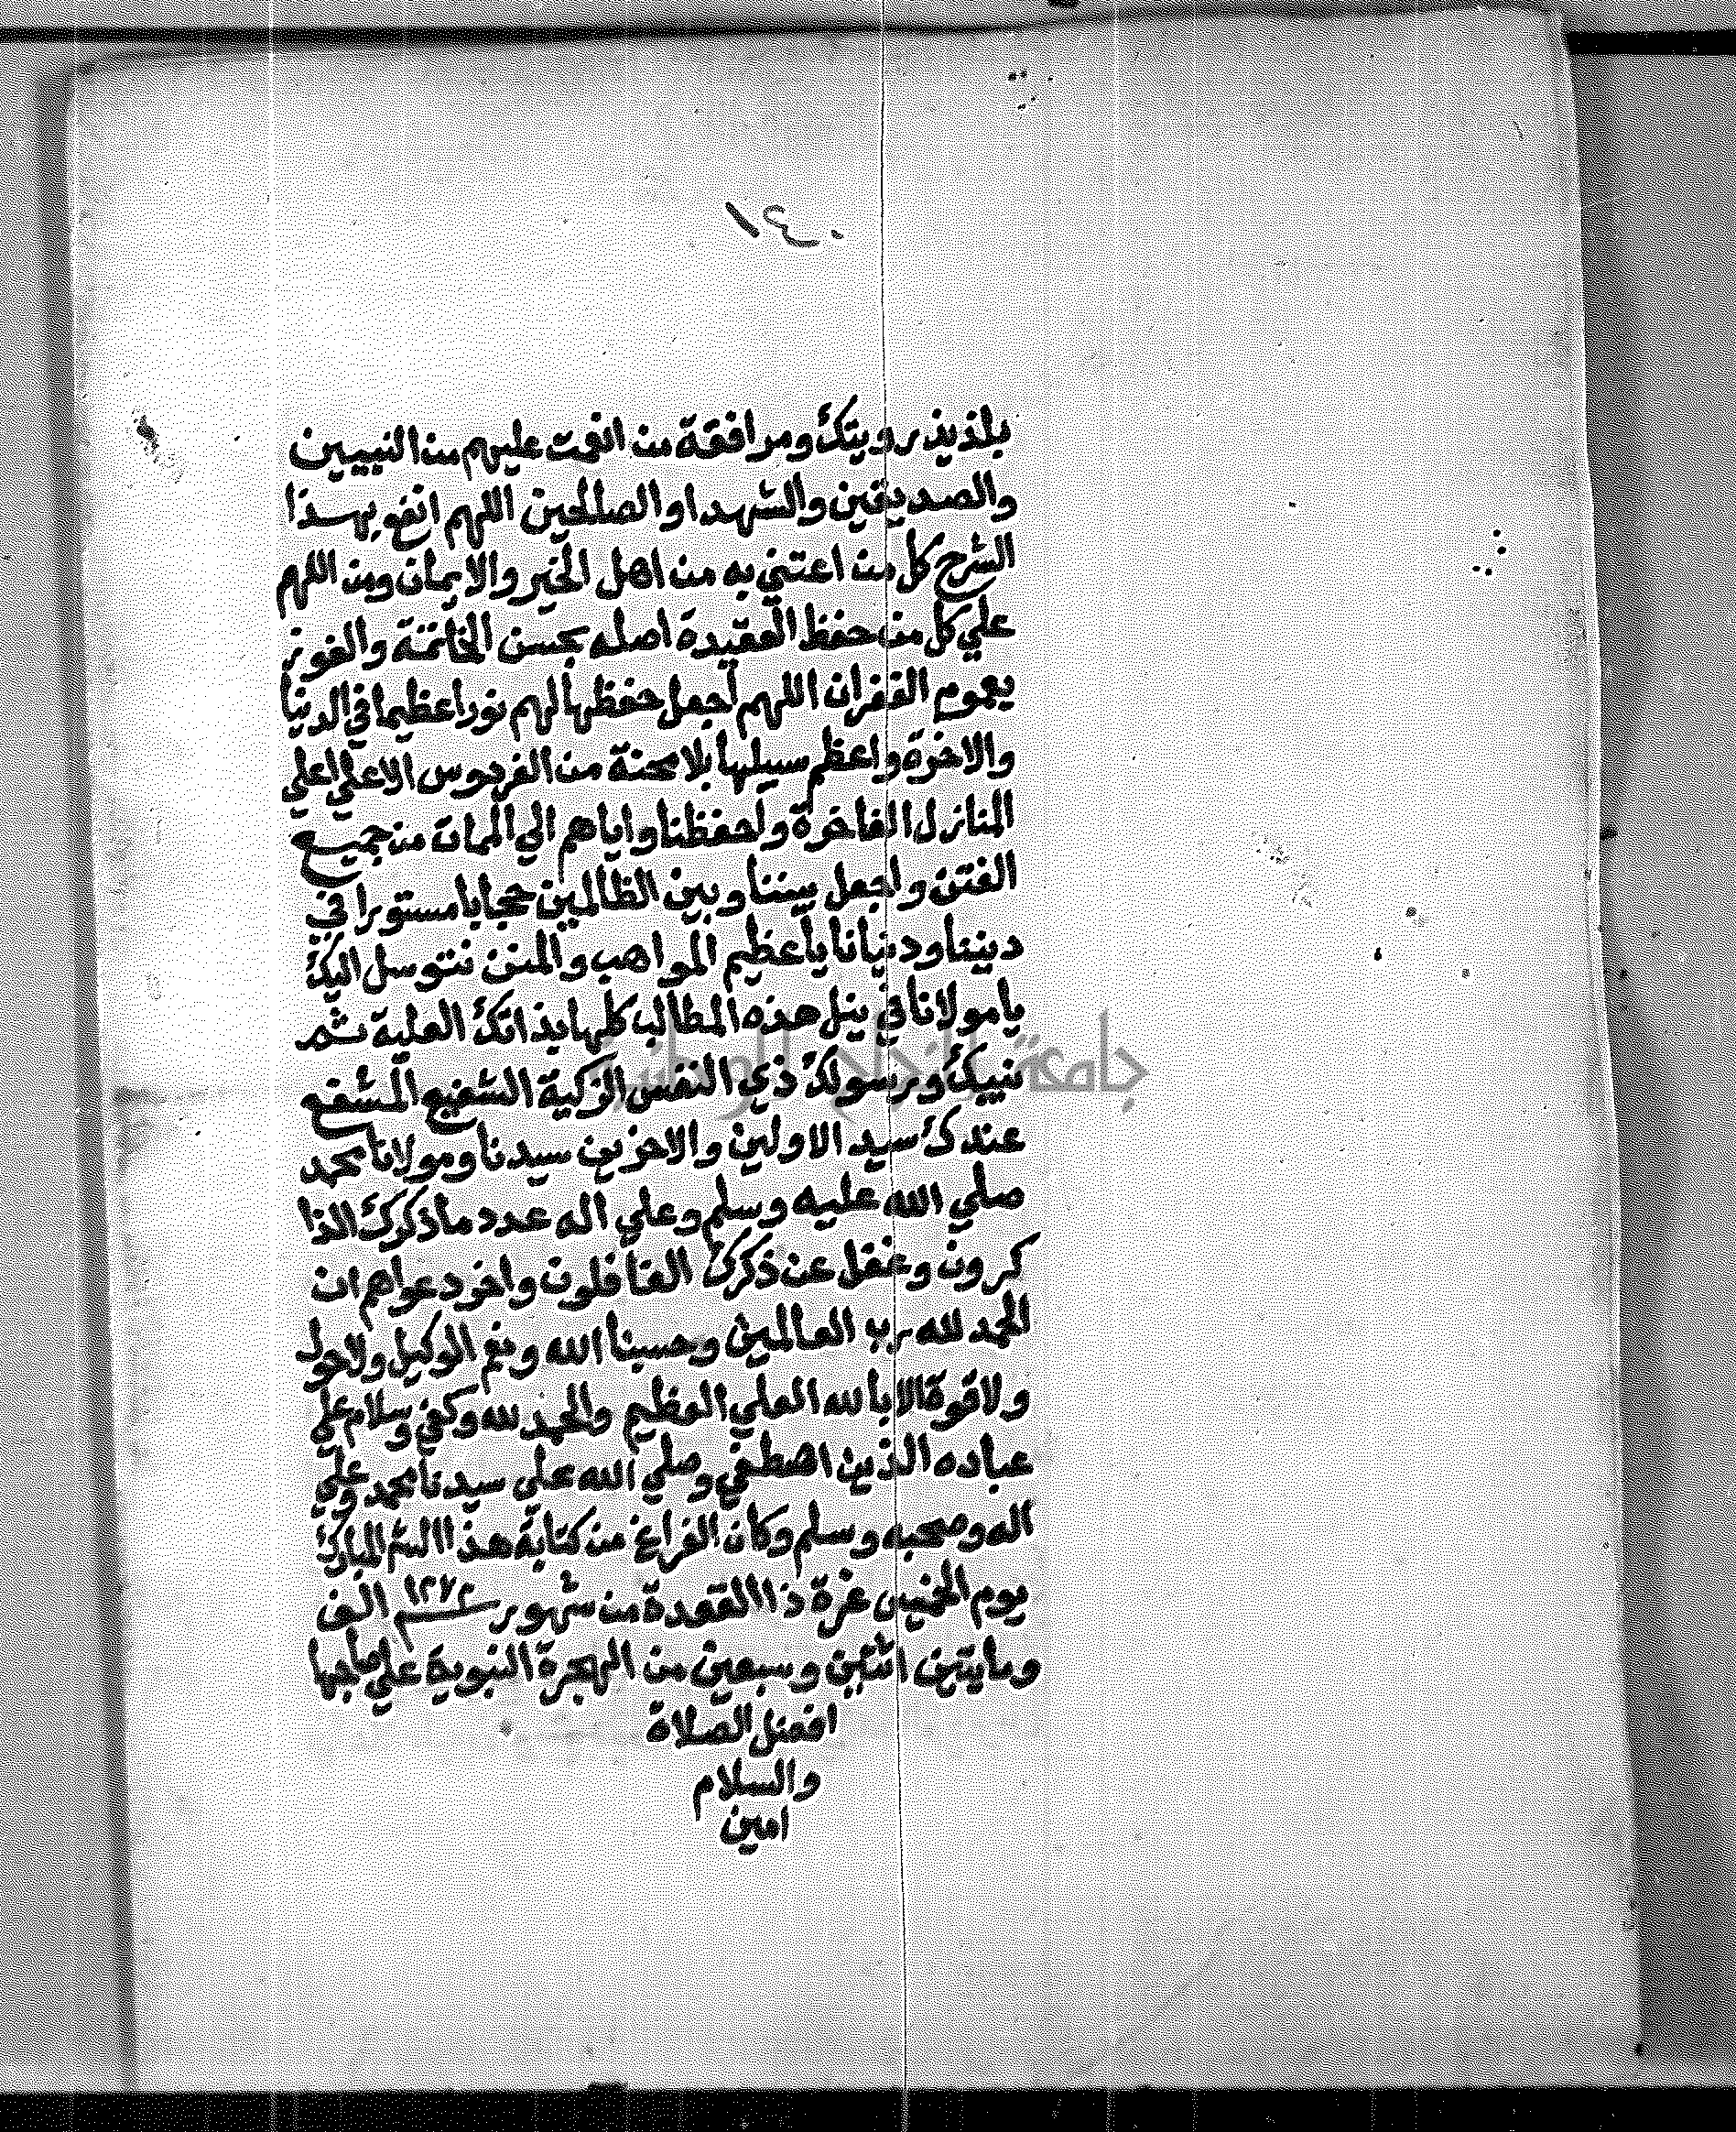 بلذيذ رويتك ومرافقة من انعمت عليهم من النبيين
والصديقين والشهدا والصالحين اللهم انفع بهذا
الشرح كل من اعتني به من اهل الخير والايمان ومن اللهم
علي كل من حفظ العقيدة اصله بحسن الخاتمة والفوز
بعموم الغفران اللهم اجعل حفظها لهم نورا عظيما في الدنيا
والاخرة واعظم سبيلها بلا محنة من الفردوس الاعلي اعلي
المنازل الفاخرة واحفظنا واياهم الي الممات من جميع
الفتن واجعل بيننا وبين الظالمين حجابا مستورا في
ديننا ودنيانا يا عظيم المواهب والمنن نتوسل اليك
يا مولانا في نيل هذه المطالب كلها بذاتك العلية ثم
نبيك ورسولك ذي النفس الزكية الشفيع المشفع
عندك سيد الاولين والاخرين سيدنا ومولانا محمد
صلي الله عليه وسلم وعلي اله عدد ما ذكرك الذا
كرون وغفل عن ذكرك الغافلون واخر دعواهم ان
الحمد لله رب العالمين وحسبنا الله ونعم الوكيل ولا حول
ولا قوة الا بالله العلي العظيم والحمد لله وكفي وسلام علي
عباده الذين اصطفي وصلي الله علي سيدنا محمد وعلي
اله وصحبه وسلم وكان الفراغ من كتابة هذا المبارك
يوم الخميس غرة ذا القعدة من شهور ١٢٧٢ الف
ومايتين اثنين وسبعين من الهجرة النبوية علي
افضل الصلاة
والسلام
امين
جامعة النجاح الوطنية